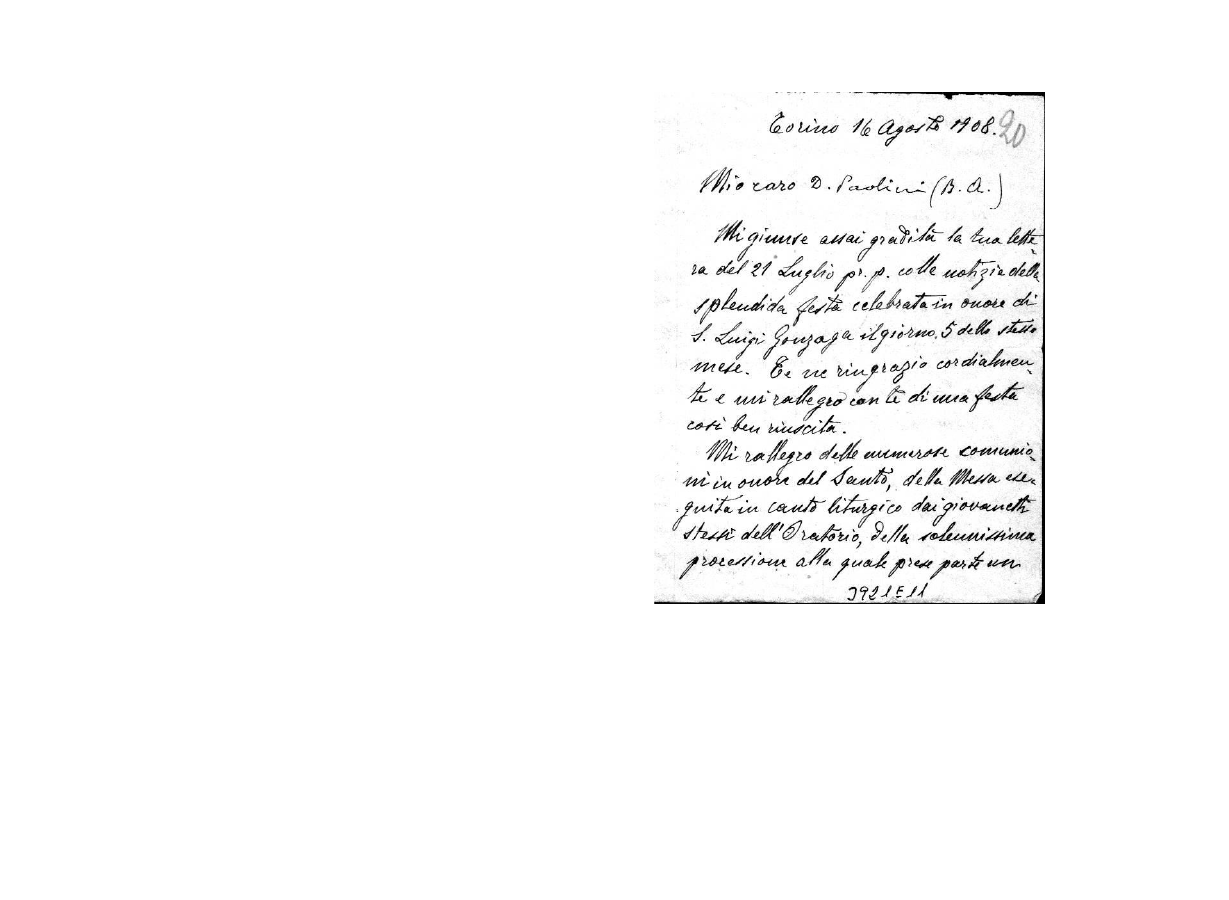 Torino 16 Agosto 1908.
20
Mio caro D. Paolini (B. A.)
Mi giunse assai gradita la tua lette-
ra del 21 Luglio pr. p. colle notizie della
splendida festa celebrata in onore di
S. Luigi Gonzaga il giorno 5 dello stesso
mese. Te ne ringrazio cordialmen-
te e mi rallegro con te di una festa
così ben riuscita.
Mi rallegro delle numerose comunio-
ni in onore del Santo, della Messa ese-
guita in canto liturgico dai giovanetti
stessi dell'Oratorio, della solennissima
processione alla quale prese parte un
3921E11